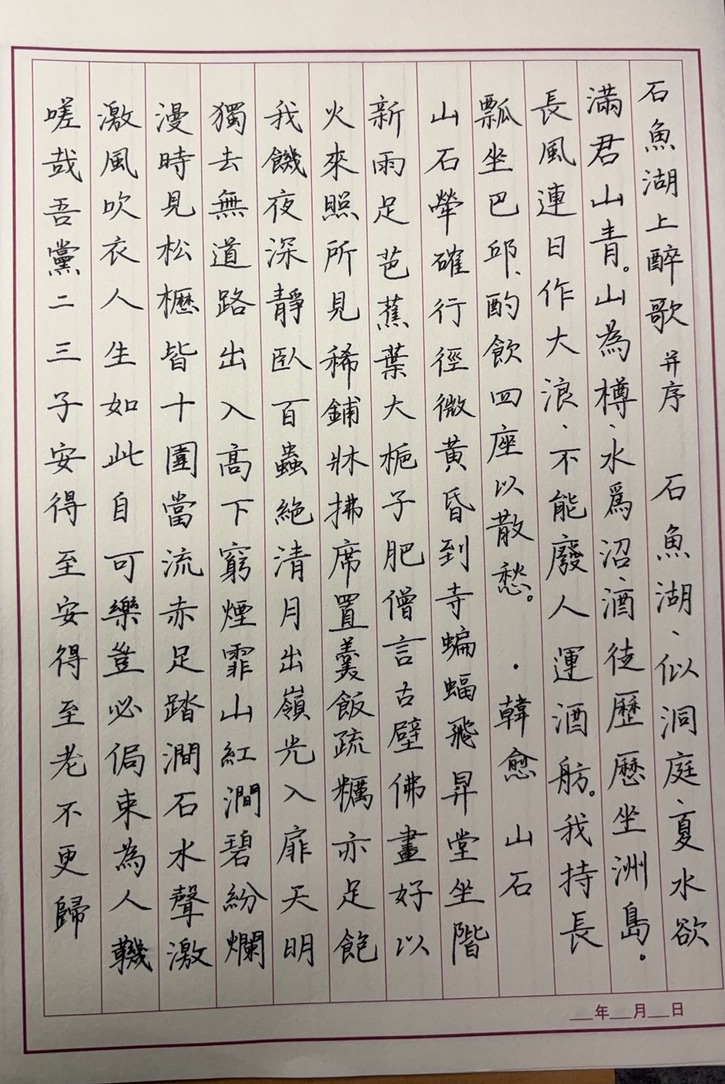 石魚湖上醉歌 并序 石魚湖、似洞庭、夏水欲
滿君山青。山為樽、水爲沼、酒徒歷歷坐洲島。
長風連日作大浪、不能廢人運酒舫。我持長
瓢坐巴邱、酌飲四座以散愁。 · 韓愈 山石
山石犖確行徑微黃昏到寺蝙蝠飛昇堂坐階
新雨足芭蕉葉大梔子肥僧言古壁佛畫好以
火來照所見稀鋪牀拂席置羹飯疏糲亦足飽
我饑夜深靜臥百蟲絕清月出嶺光入扉天明
獨去無道路出入高下窮煙霏山紅澗碧紛爛
漫時見松櫪皆十圍當流赤足踏澗石水聲激
激風吹衣人生如此自可樂豈必侷束為人鞿
嗟哉吾黨二三子安得至安得至老不更歸
年 月 日